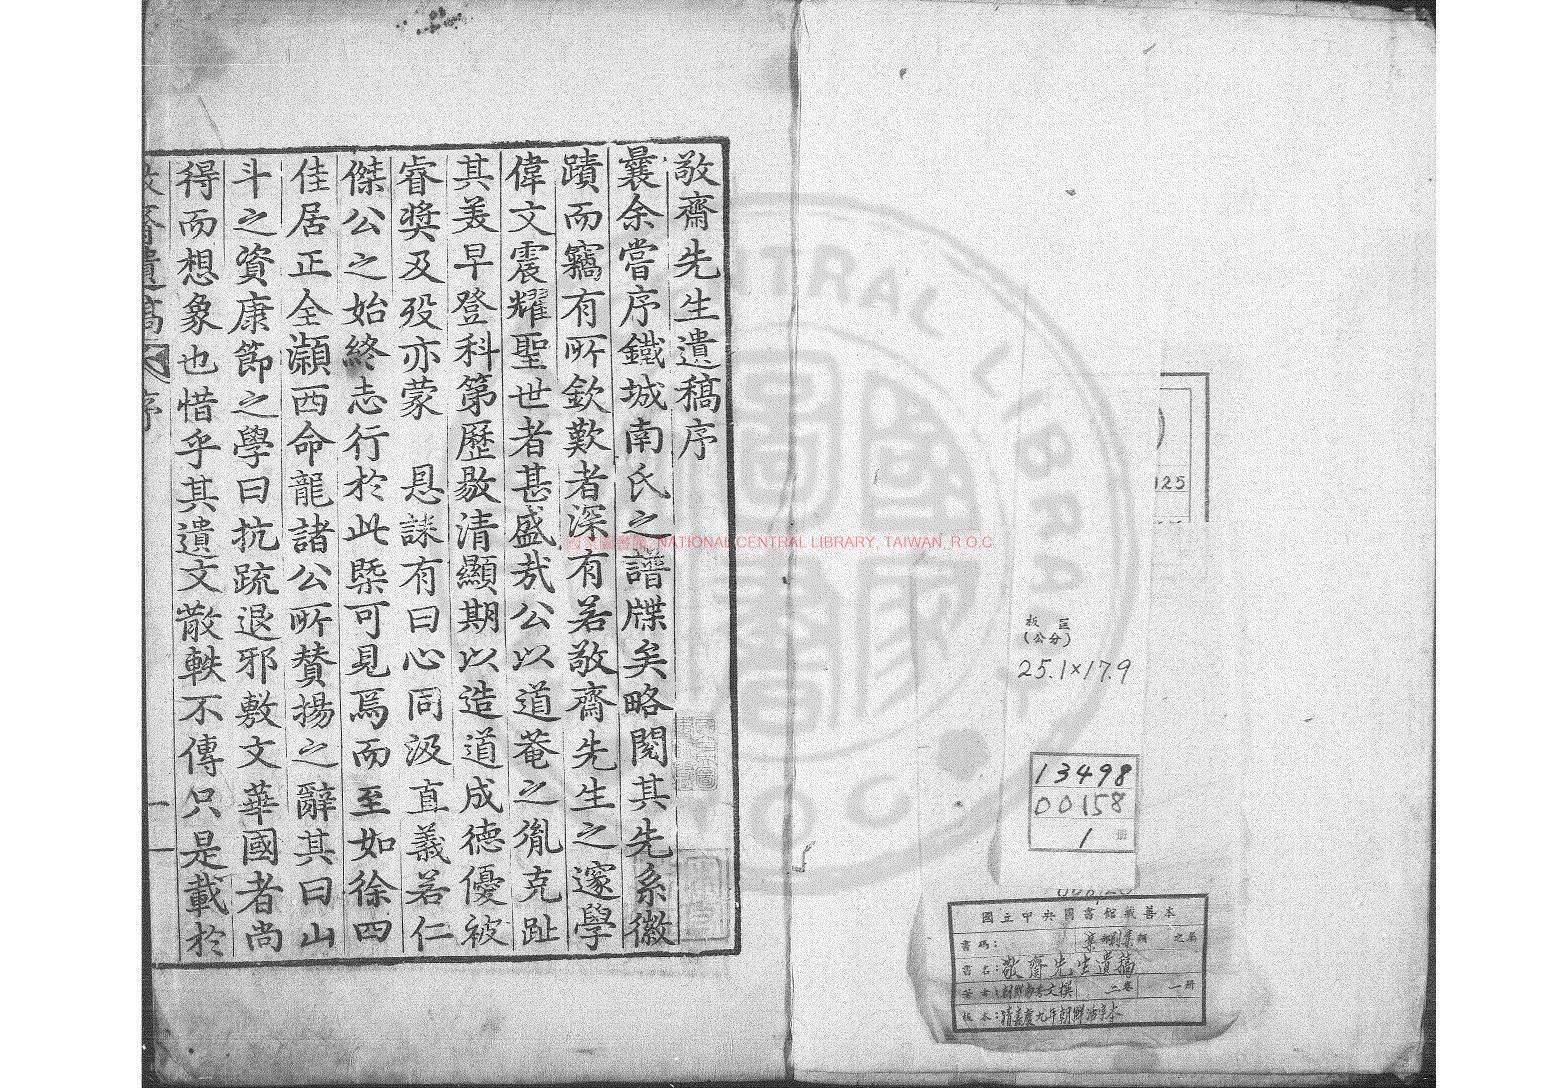 敬齋先生遺稿序
曩余嘗序鐵城南氏之譜牒矣略閱其先系徽
蹟而竊有所欽歎者深有若敬齋先生之邃學
偉文震耀聖世者甚盛哉公以道菴之胤克趾
其美早登科第歷敭清顯期以造道成德優被
睿奬及歿亦蒙 恩誄有曰心同汲直義若仁
傑公之始終志行於此槩可見焉而至如徐四
佳居正全灝西命龍諸公所贊揚之辭其曰山
斗之資康節之學曰抗疏退邪敷文華國者尚
得而想象也惜乎其遺文散軼不傳只是載於
敬齋遺稿 序
一
NATIONAL CENTRAL LIBRARY, TAIWAN, R.O.C.
125
板匡
(公分)
25.1×17.9
13498
00158
1 冊
國立中央圖書館藏善本
書碼: 集 別集類 之屬
書名: 敬齋先生遺稿
二卷 一冊
板本: 清嘉慶九年朝鮮活字本